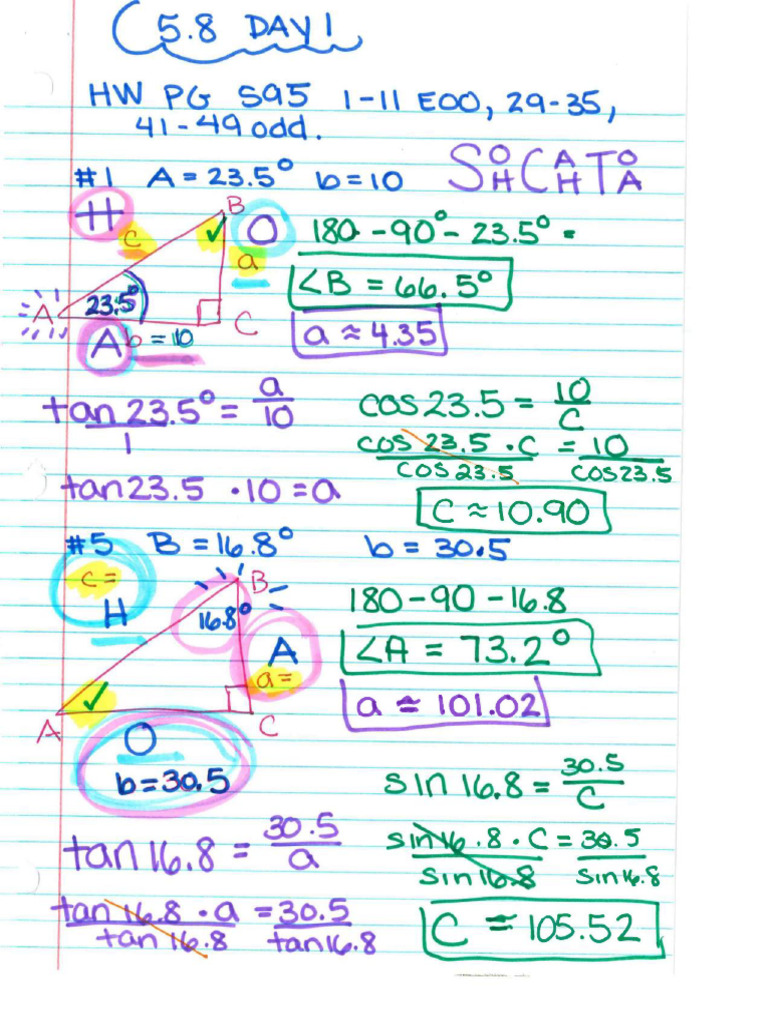 5.8 DAY 1
HW PG 595 1-11 EOO, 29-35,
41-49 odd.
#1 A = 23.5° b = 10 SOH CAH TOA
H
c
B
O
a
A
23.5°
A b = 10
C
180 - 90° - 23.5° =
∠B = 66.5°
a ≈ 4.35
tan 23.5° / 1 = a / 10
tan 23.5 · 10 = a
cos 23.5 = 10 / C
cos 23.5 · C / cos 23.5 = 10 / cos 23.5
C ≈ 10.90
#5 B = 16.8° b = 30.5
c =
H
B
16.8°
A
a =
A
C
O
b = 30.5
180 - 90 - 16.8
∠A = 73.2°
a ≈ 101.02
tan 16.8 = 30.5 / a
tan 16.8 · a / tan 16.8 = 30.5 / tan 16.8
sin 16.8 = 30.5 / C
sin 16.8 · C / sin 16.8 = 30.5 / sin 16.8
C ≈ 105.52